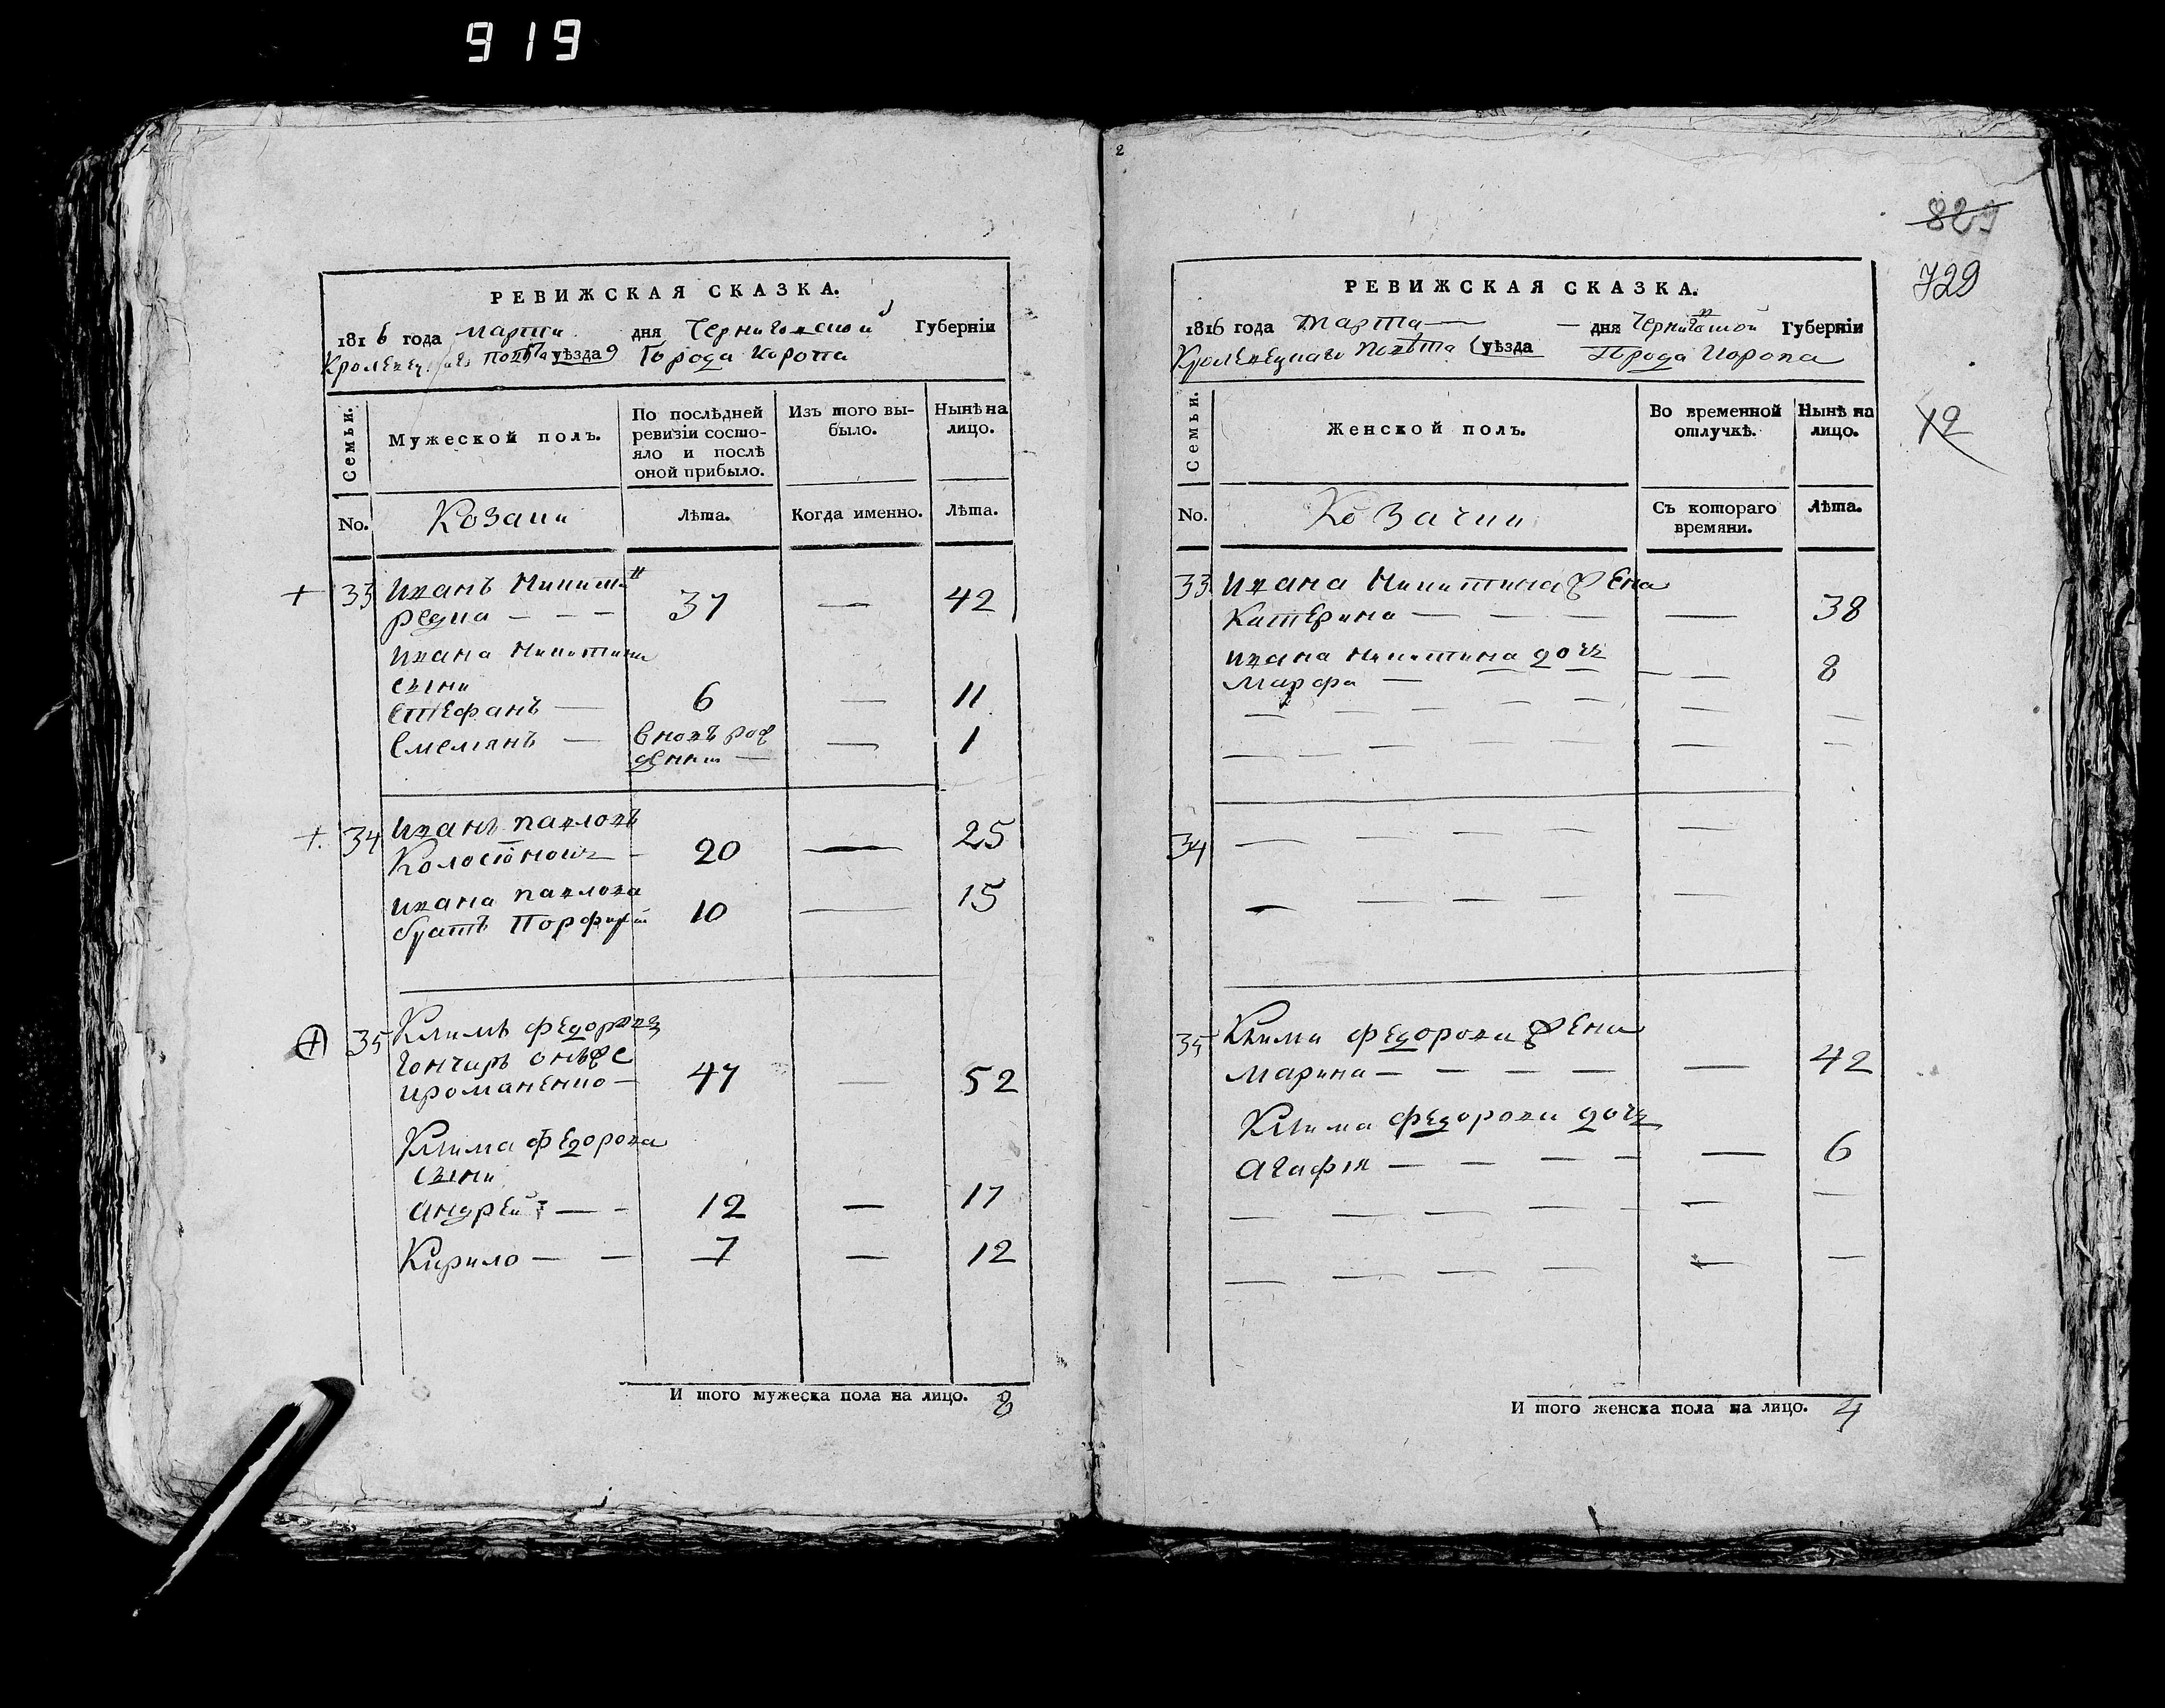 919
РЕВИЖСКАЯ СКАЗКА.
1816 года марта дня Черниговской Губерніи
Кролевецкаго повѣта уѣзда Города Коропа
Семьи.
Мужеской полъ.
По послѣдней ревизіи состо-
яло и послѣ
оной прибыло.
Изъ того вы-
было.
Нынѣ на
лицо.
No.
Козаки
Лѣта.
Когда именно.
Лѣта.
+ 33 Иванъ Никитин
Редка — — — 37 — 42
Ивана Никитина
сыни
Стефанъ — 6 — 11
Емелянъ — вновь рож
денни — — 1
+ 34 Иванъ павловъ
20 — 25
Ивана павлова
братъ Порфирій 10 — 15
+ 35 Климъ федоровъ
Гончаръ онъже
ироманенко — 47 — 52
Клима федорова
сыни
андрей — — 12 — 17
Кирило — — 7 — 12
И того мужеска пола на лицо. 8
2
829
729
12
РЕВИЖСКАЯ СКАЗКА.
1816 года марта — — дня Черниговской Губерніи
Кролевецкаго повѣта уѣзда Города Коропа
Семьи.
Женской полъ.
Во временной
отлучкѣ.
Нынѣ на
лицо.
No.
Козачки
Съ котораго
времяни.
Лѣта.
33 Ивана Никитина жена
Катерина — — — — 38
Ивана никитина дочь
Марфа — — — — — 8
34
35 Клима федорова жена
марина — — — — — 42
Клима федорова дочь
агафія — — — — — 6
И того женска пола на лицо. 4